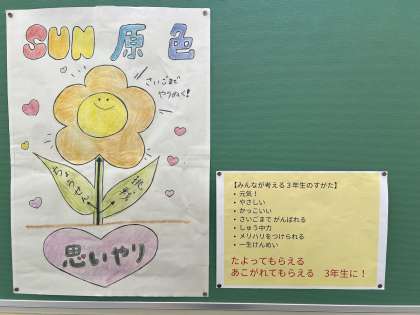 SUN 原色
さいごまで
やりぬく!
ちょうせん
挑戦!
思いやり
【みんなが考える3年生のすがた】
・元気!
・やさしい
・かっこいい
・さいごまで がんばれる
・しゅう中力
・メリハリをつけられる
・一生けんめい
たよってもらえる
あこがれてもらえる 3年生に!